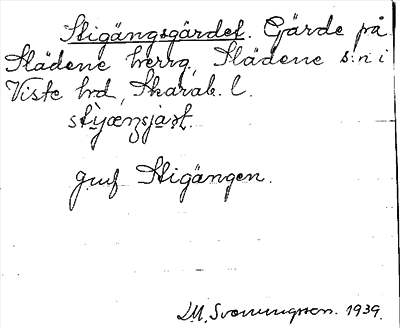 Stigängsgärdet. Gärde på
Slädene herrg, Slädene s:n i
Viste hrd, Skarab. l.
stijænsjaşt.
jmf Stigängen.
M. Svenningsson. 1939.